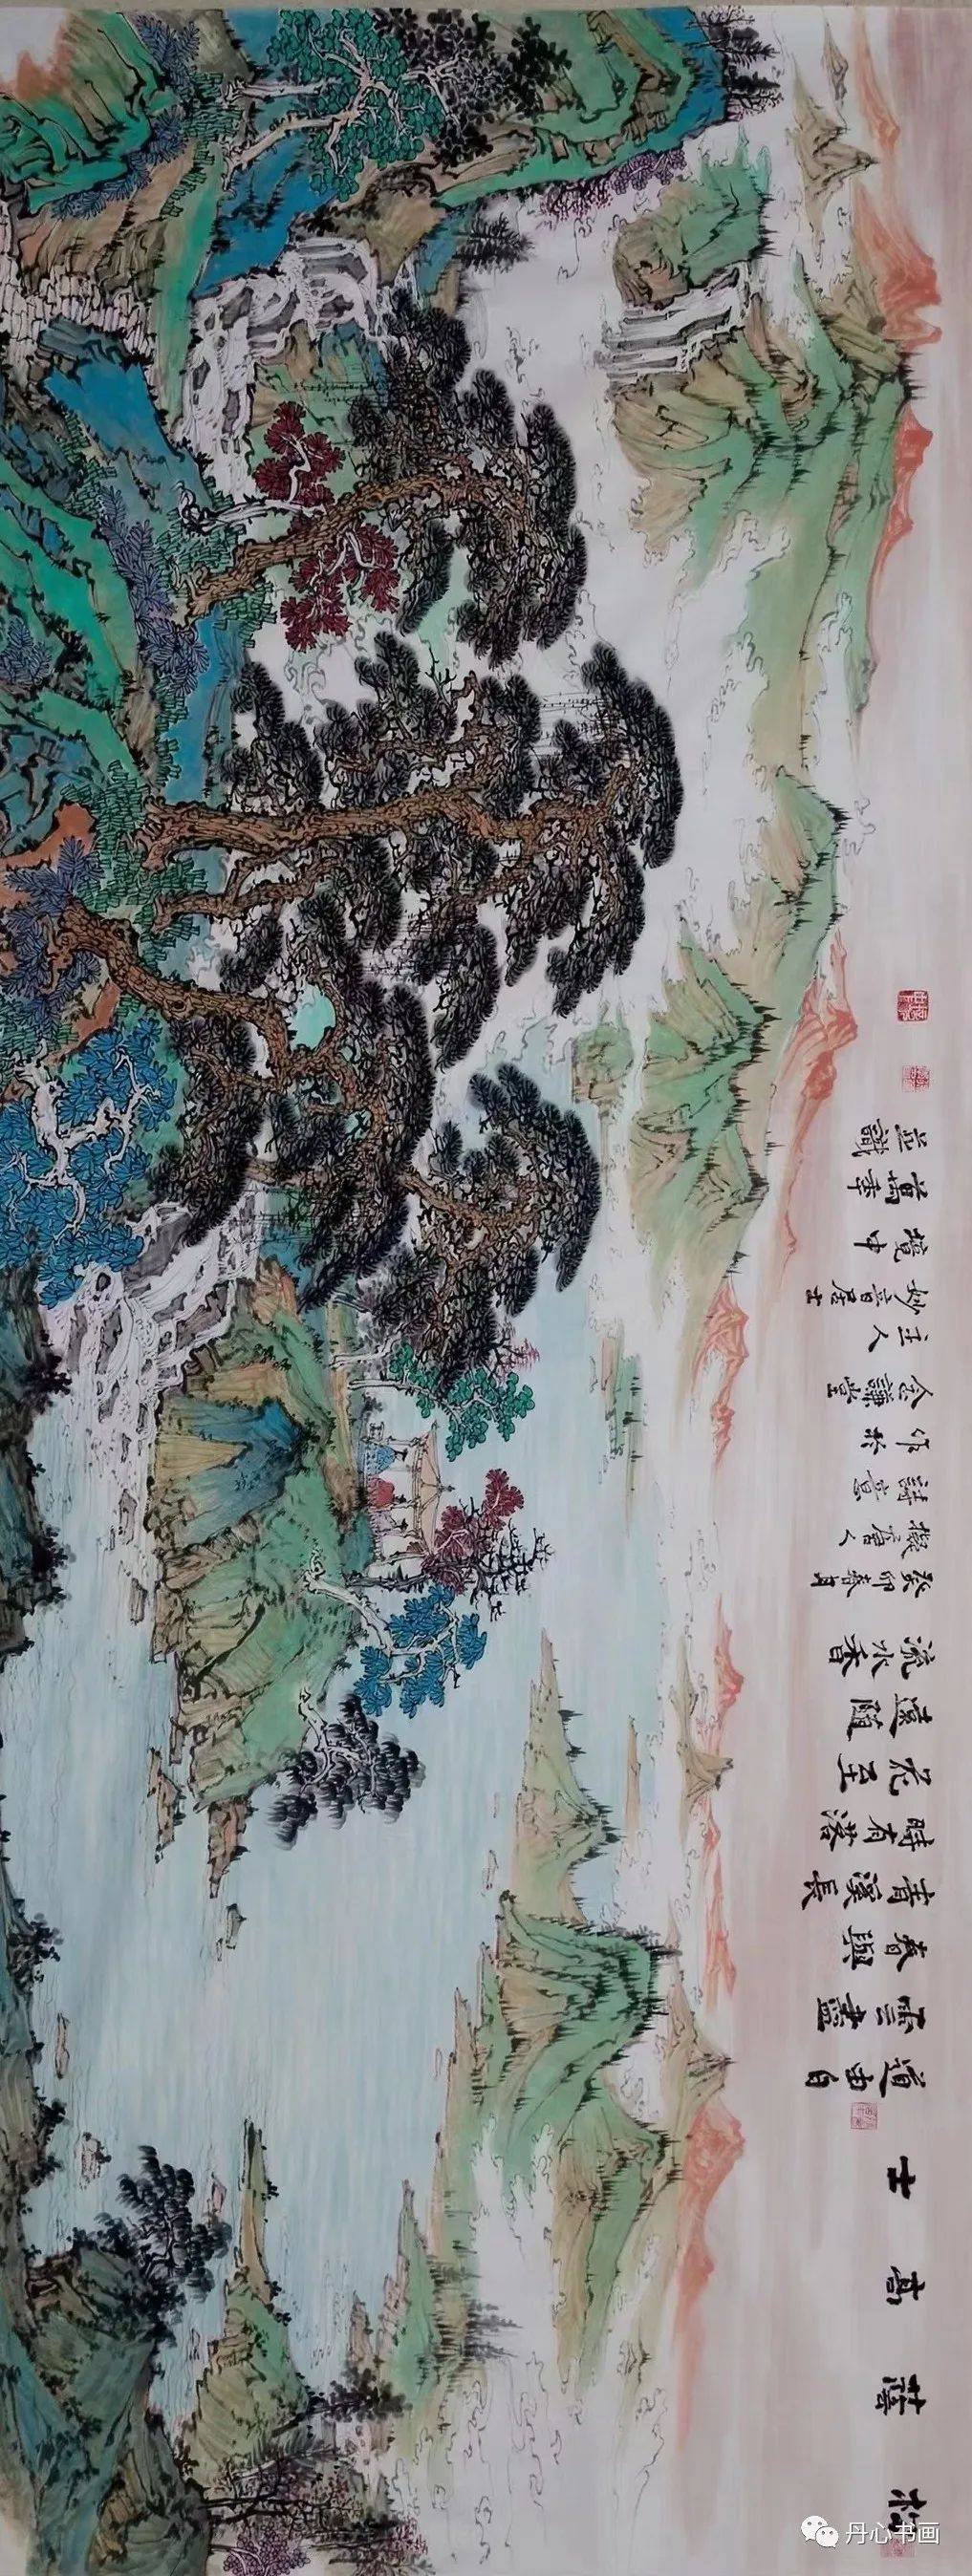 松蔭高士
道由白
雲盡
春與
青溪長
時有落
花至
遠隨
流水香
癸卯春月
擬唐人
詩意
作於
謙堂
主人
妙音居士
境中
萬年
並識
丹心书画